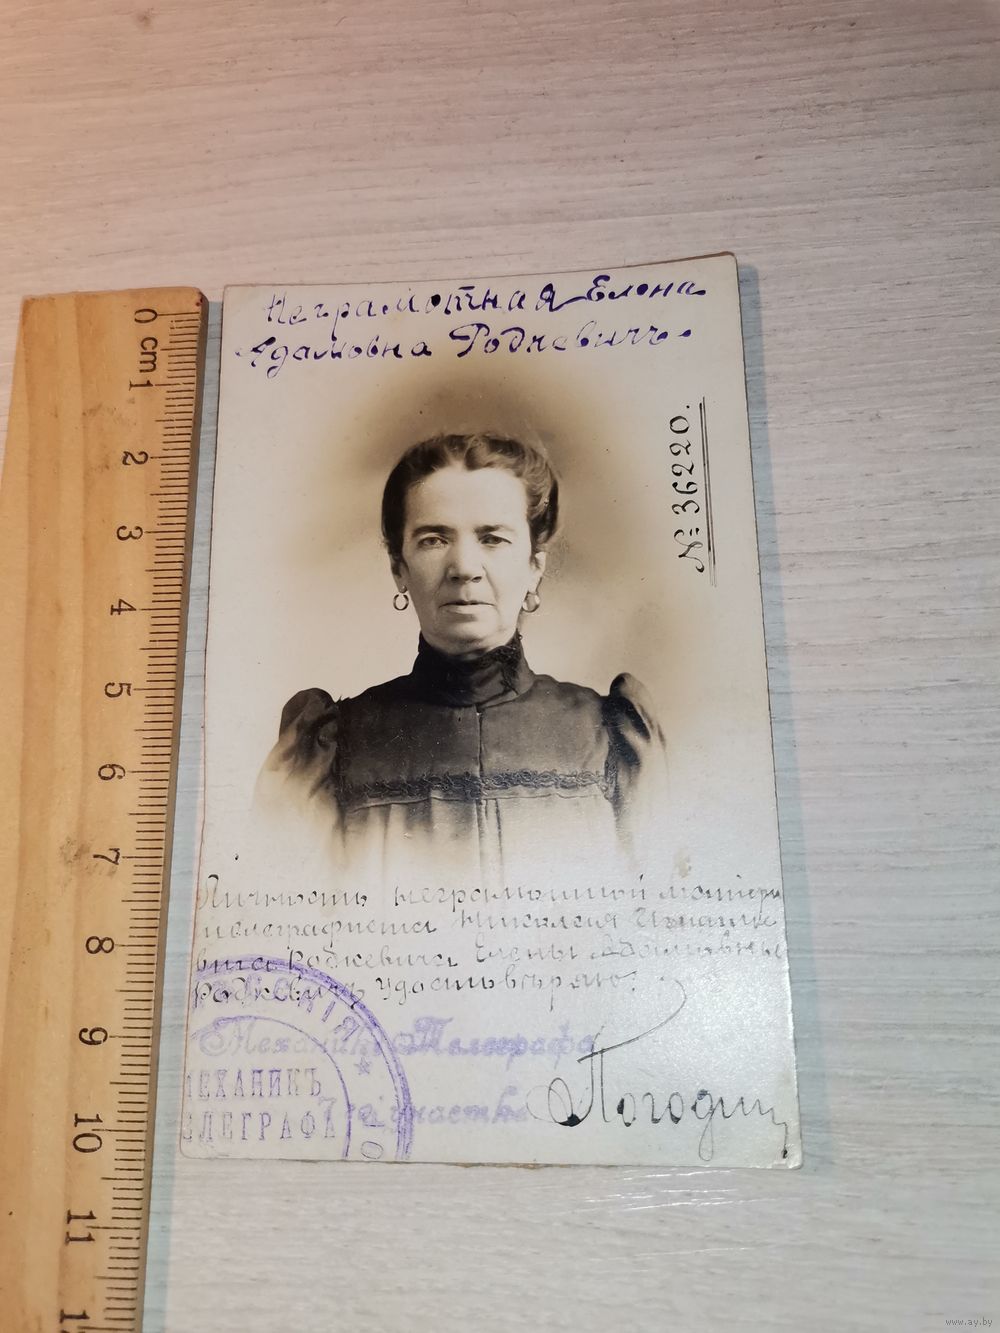 Неграмотная Елена
Адамовна Родкевичъ.
№ 36220.
Личность неграмотной матери
телеграфиста Николая Игнатье
вича Родкевича Елены Адамовны
Родкевичъ удостовѣряю:
Механикъ Телеграфа
участка
Погодин
МЕХАНИКЪ
ЕЛЕГРАФА
0 cm
1
2
3
4
5
6
7
8
9
10
11
www.ay.by